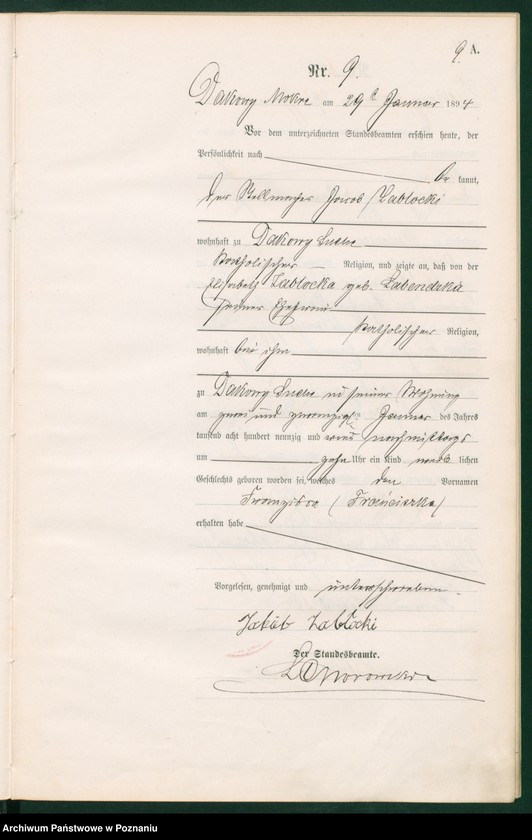 9. A.
Nr. 9.
Dakowy Mokre am 29 t Januar 1894
Vor dem unterzeichneten Standesbeamten erschien heute, der
Persönlichkeit nach
be kannt,
der Stellmacher Jacob Zablocki
wohnhaft zu Dakowy Suche
katholischer Religion, und zeigte an, daß von der
Elisabeth Zablocka geb. Labendzka
seiner Ehefrau
katholischer Religion,
wohnhaft bei ihm
zu Dakowy Suche in seiner Wohnung
am zwei und zwanzigsten Januar des Jahres
tausend acht hundert neunzig und vier nachmittags
um zehn Uhr ein Kind weib lichen
Geschlechts geboren worden sei, welches den Vornamen
Franziska (Franciszka)
erhalten habe
Vorgelesen, genehmigt und unterschrieben.
Jakób Zabłocki
Der Standesbeamte.
Archiwum Państwowe w Poznaniu